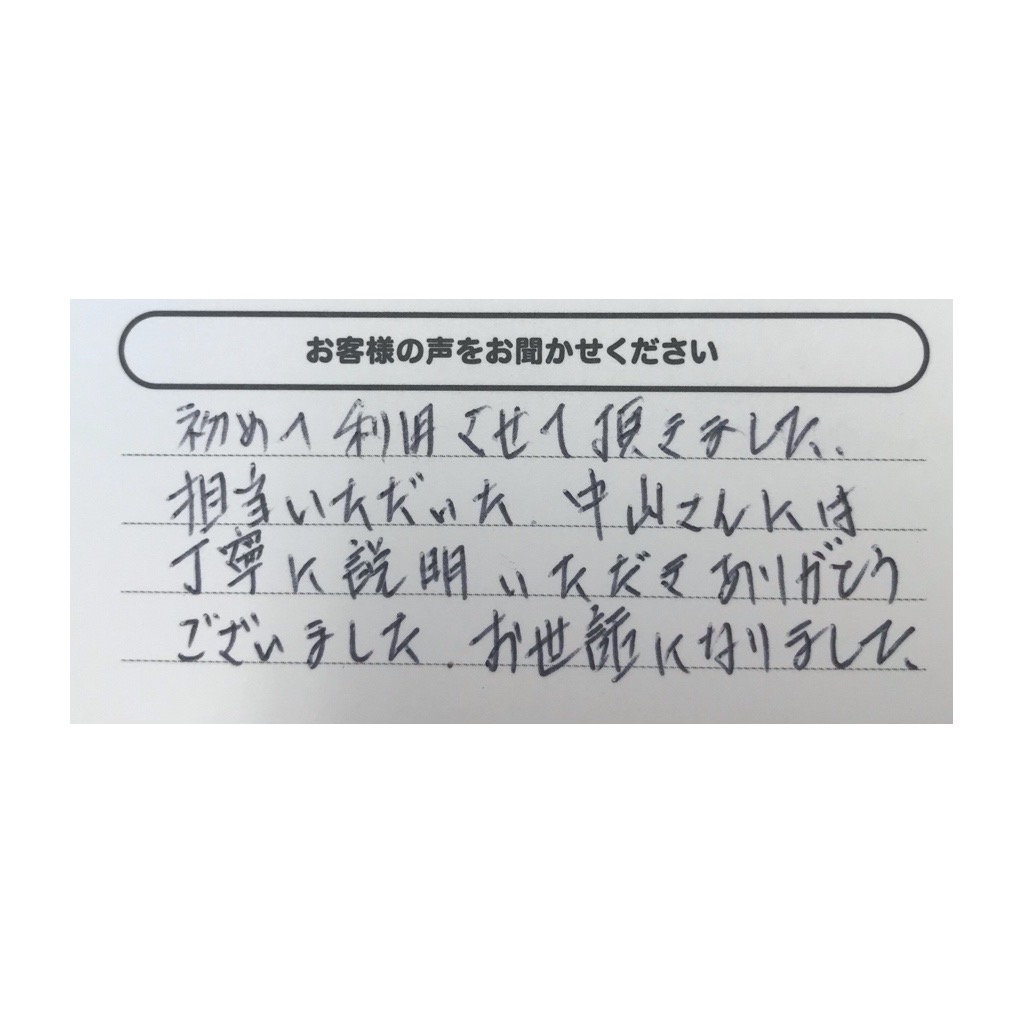 お客様の声をお聞かせください
初めて利用させて頂きました、
担当いただいた、中山さんには
丁寧に説明いただきありがとう
ございました、お世話になりました、